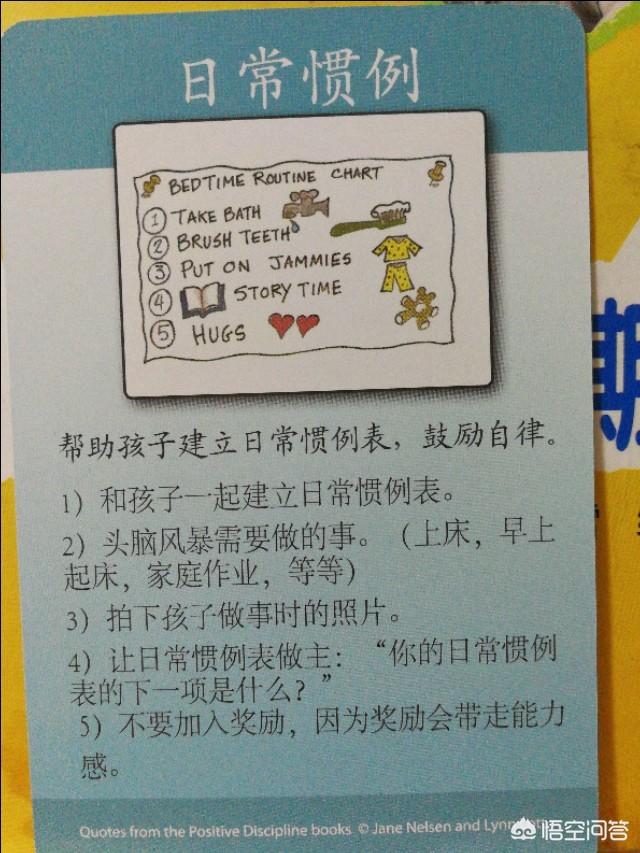 日常惯例
BEDTIME ROUTINE CHART
1 TAKE BATH
2 BRUSH TEETH
3 PUT ON JAMMIES
4 STORY TIME
5 HUGS
帮助孩子建立日常惯例表，鼓励自律。
1）和孩子一起建立日常惯例表。
2）头脑风暴需要做的事。（上床，早上
起床，家庭作业，等等）
3）拍下孩子做事时的照片。
4）让日常惯例表做主：“你的日常惯例
表的下一项是什么？”
5）不要加入奖励，因为奖励会带走能力
感。
Quotes from the Positive Discipline books © Jane Nelsen and Lynn
悟空问答